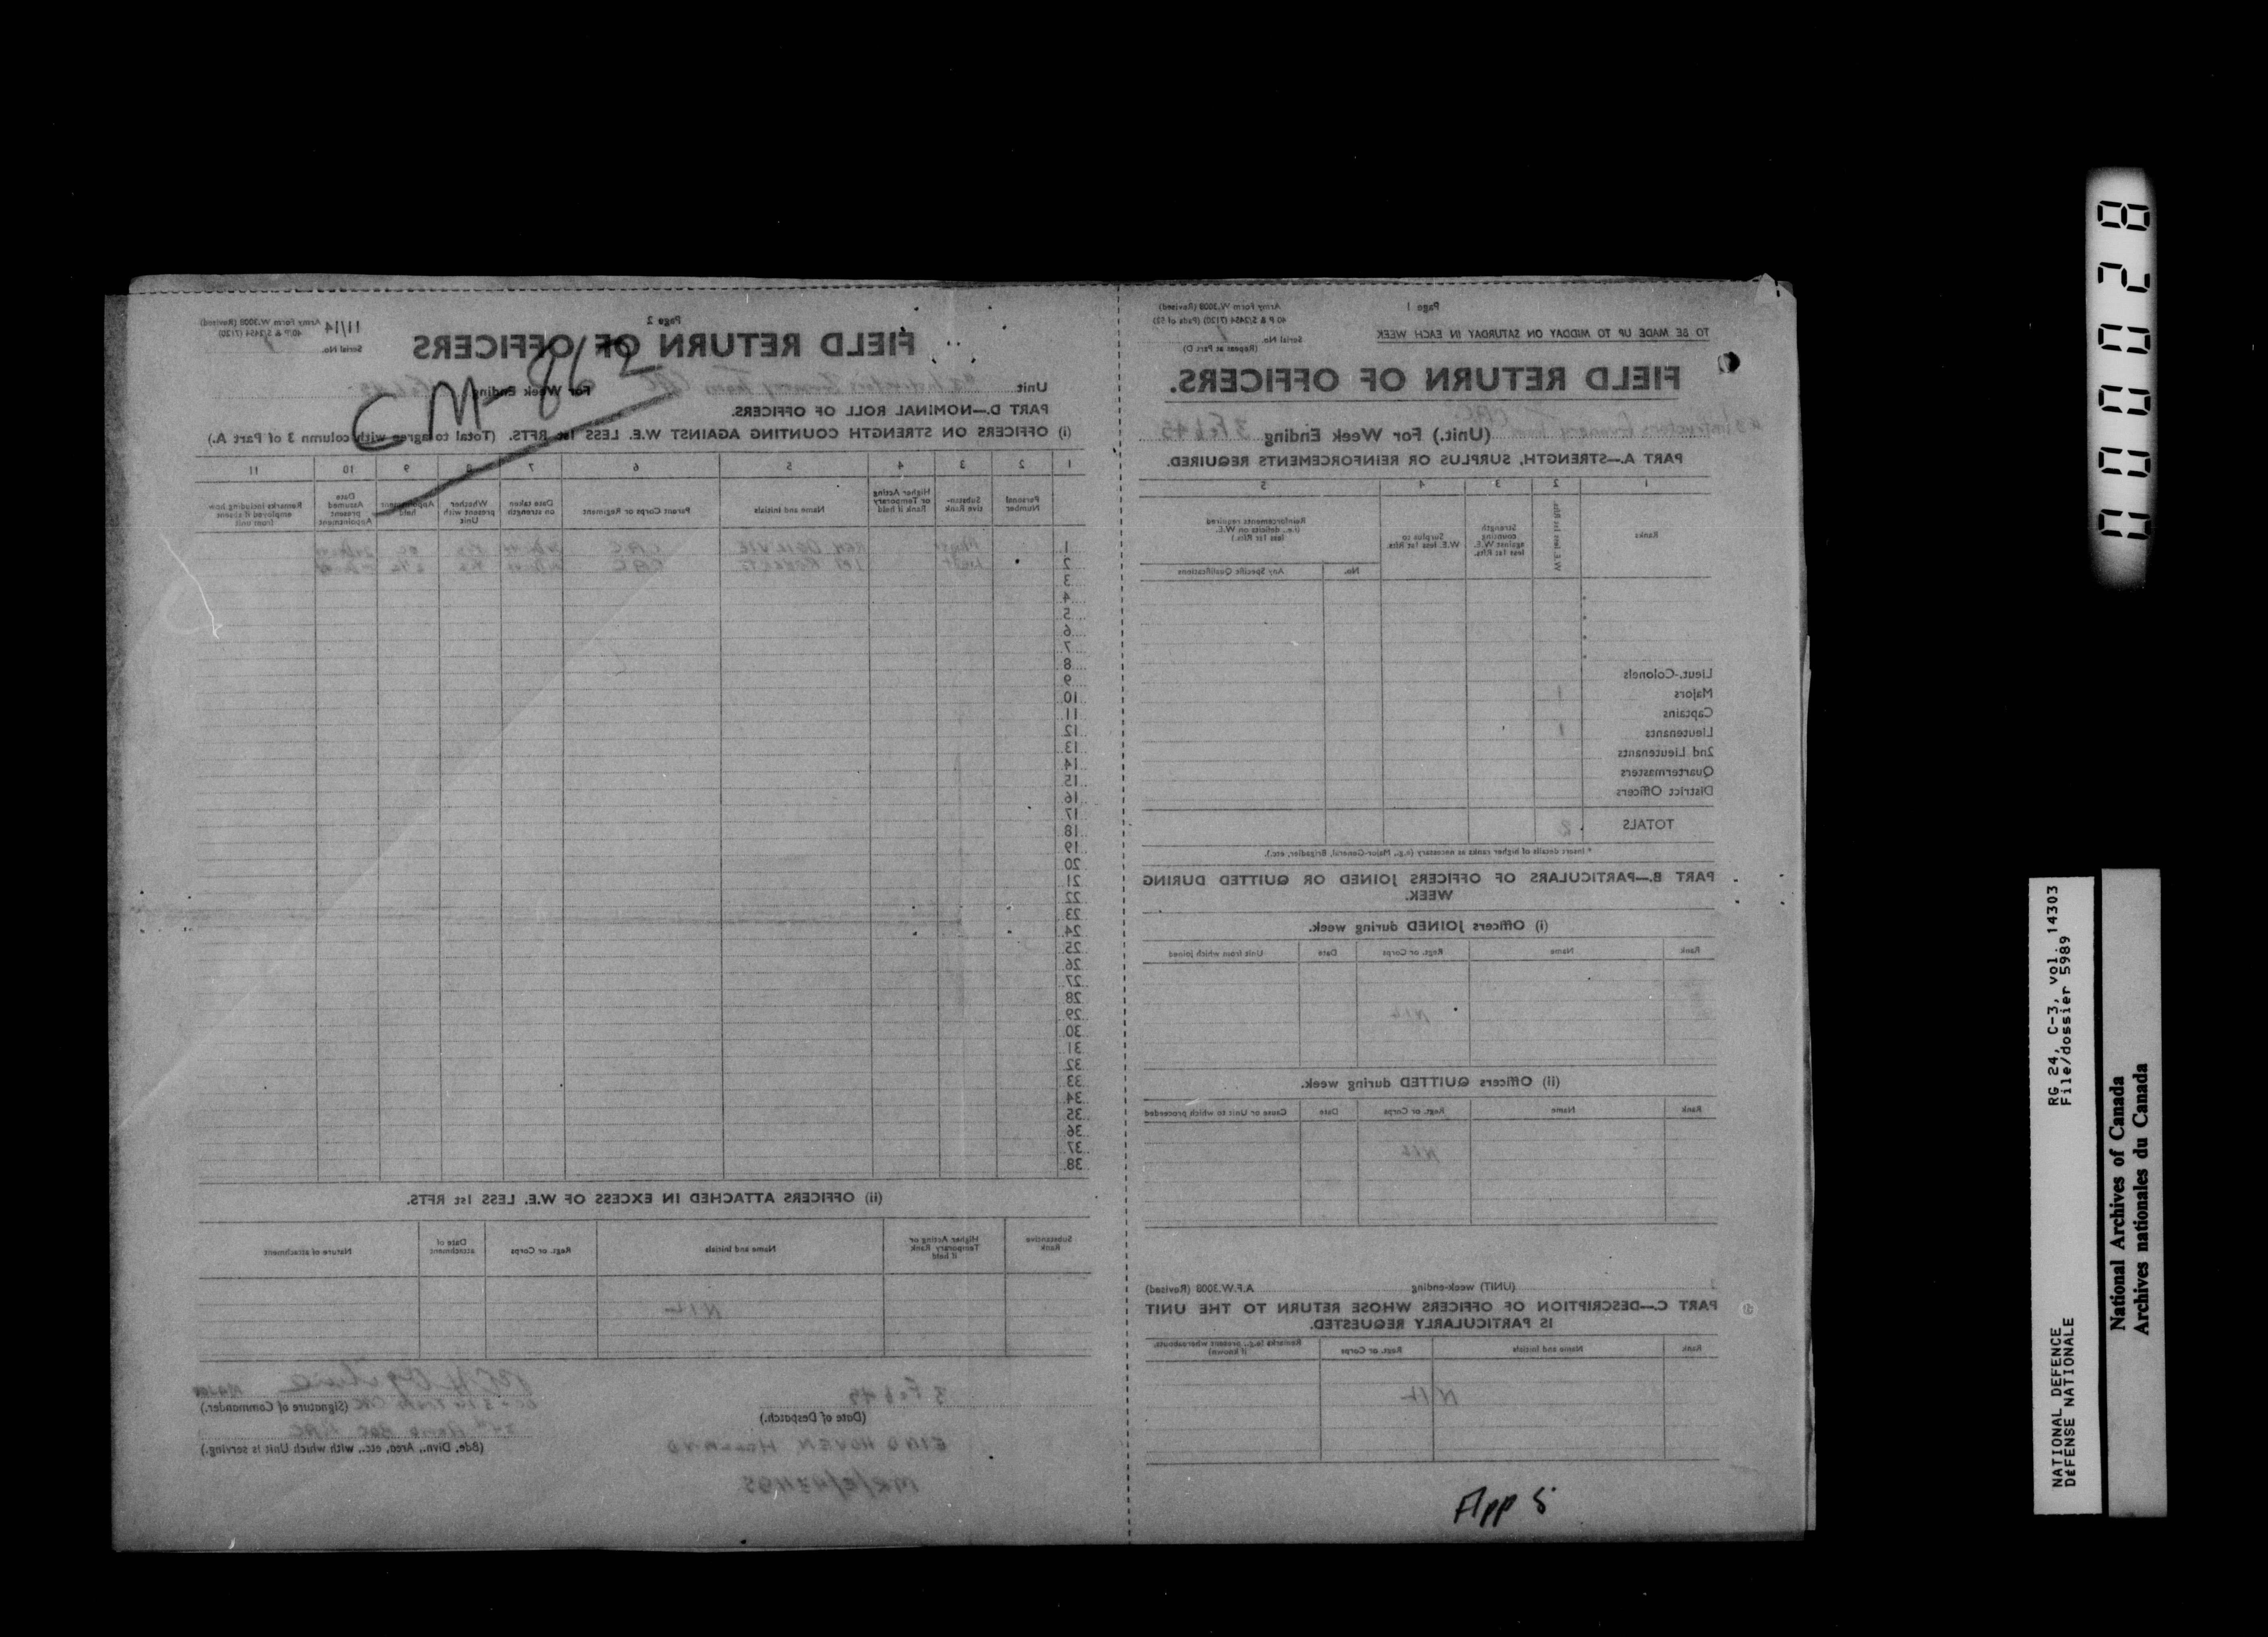 CM-862
App 5
Page 2
11/14
Army Form W.3008 (Revised)
40/P & S/2454 (7120)
Serial No.
FIELD RETURN OF OFFICERS
Unit
For Week Ending
PART D.—NOMINAL ROLL OF OFFICERS.
(i) OFFICERS ON STRENGTH COUNTING AGAINST W.E. LESS 1st RFTS. (Total to agree with column 3 of Part A.)
1 2 3 4 5 6 7 8 9 10 11
Personal Number
Substan-
tive Rank
Higher Acting
or Temporary
Rank if held
Name and Initials
Parent Corps or Regiment
Date taken
on strength
Whether
present with
Unit
Appointment
held
Date
Assumed
present
Appointment
Remarks including how
employed if absent
from unit
1
2
3
4
5
6
7
8
9
10
11
12
13
14
15
16
17
18
19
20
21
22
23
24
25
26
27
28
29
30
31
32
33
34
35
36
37
38
(ii) OFFICERS ATTACHED IN EXCESS OF W.E. LESS 1st RFTS.
Substantive
Rank
Higher Acting or
Temporary Rank
if held
Name and Initials
Regt. or Corps
Date of
attachment
Nature of attachment
NIL
3 Feb 45
(Date of Despatch.)
EINDHOVEN HOLLAND
Major
(Signature of Commander.)
(Bde, Divn., Area, etc., with which Unit is serving.)
Page 1
Army Form W.3008 (Revised)
40 P & S/2454 (7120) (Pads of 50)
TO BE MADE UP TO MIDDAY ON SATURDAY IN EACH WEEK
Serial No.
(Repeat at Part D)
FIELD RETURN OF OFFICERS.
(Unit.) For Week Ending 3 Feb 45
PART A.—STRENGTH, SURPLUS OR REINFORCEMENTS REQUIRED.
1 2 3 4 5
Ranks
W.E. less 1st Rfts.
Strength
counting
against W.E.
less 1st Rfts.
Surplus to
W.E. less 1st Rfts.
Reinforcements required
(i.e., deficits on W.E.
less 1st Rfts.)
No.
Any Specific Qualifications
Lieut.-Colonels
Majors 1
Captains
Lieutenants 1
2nd Lieutenants
Quartermasters
District Officers
TOTALS 2
* Insert details of higher ranks as necessary (e.g., Major-General, Brigadier, etc.).
PART B.—PARTICULARS OF OFFICERS JOINED OR QUITTED DURING
WEEK.
(i) Officers JOINED during week.
Rank Name Regt. or Corps Date Unit from which joined
NIL
(ii) Officers QUITTED during week.
Rank Name Regt. or Corps Date Cause or Unit to which proceeded
NIL
(UNIT) week-ending A.F.W.3008 (Revised)
PART C.—DESCRIPTION OF OFFICERS WHOSE RETURN TO THE UNIT
IS PARTICULARLY REQUESTED.
Rank Name and Initials Regt. or Corps
Remarks (e.g., present whereabouts,
if known)
NIL
00028
RG 24, C-3, vol. 14303
File/dossier 5989
NATIONAL DEFENCE
DÉFENSE NATIONALE
National Archives of Canada
Archives nationales du Canada